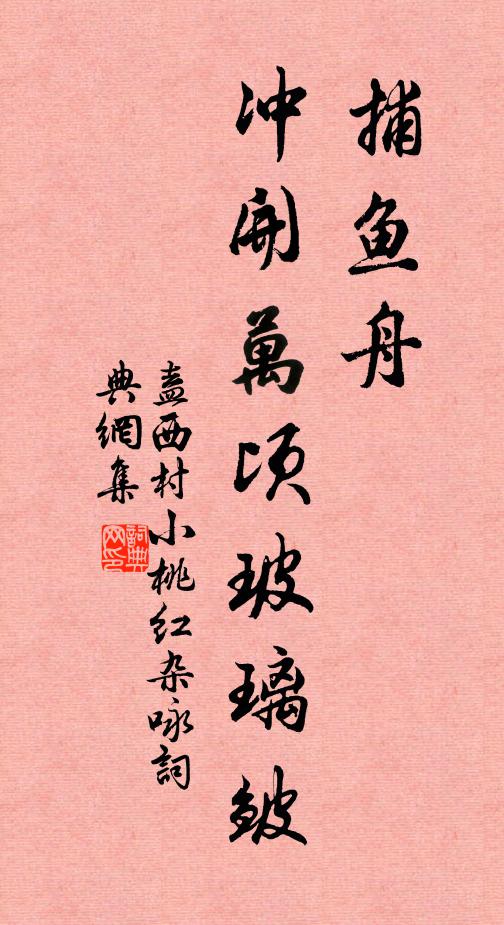 捕鱼舟
冲開萬顷玻璃皱
盍西村小桃红杂咏詞
典網集
詞典网印